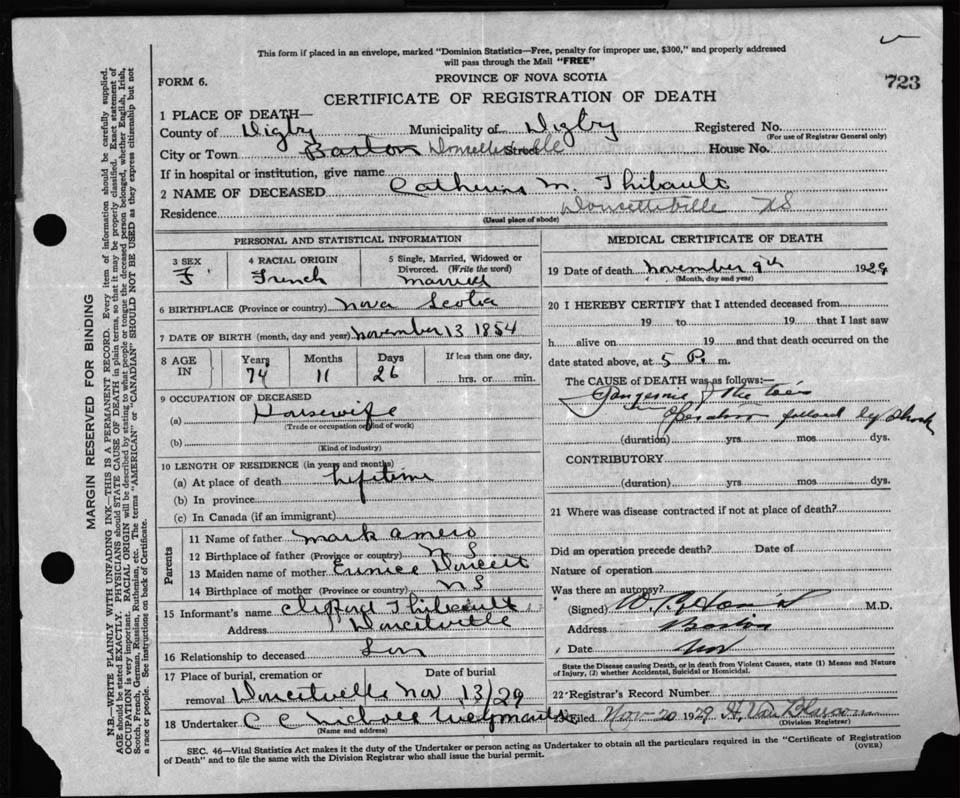 This form if placed in an envelope, marked "Dominion Statistics—Free, penalty for improper use, $300," and properly addressed
will pass through the Mail "FREE"
FORM 6.
PROVINCE OF NOVA SCOTIA
723
CERTIFICATE OF REGISTRATION OF DEATH
1 PLACE OF DEATH—
County of Digby Municipality of Digby Registered No.
(For use of Registrar General only)
City or Town Barton Doucetteville Street House No.
If in hospital or institution, give name
2 NAME OF DECEASED Catherine M. Thibault
Residence Doucetteville NS
(Usual place of abode)
PERSONAL AND STATISTICAL INFORMATION
3 SEX
F
4 RACIAL ORIGIN
French
5 Single, Married, Widowed or
Divorced. (Write the word)
Married
6 BIRTHPLACE (Province or country) Nova Scotia
7 DATE OF BIRTH (month, day and year) November 13 1854
8 AGE
IN
Years
74
Months
11
Days
26
If less than one day,
hrs. or min.
9 OCCUPATION OF DECEASED
(a) Housewife
(Trade or occupation or kind of work)
(b)
(Kind of industry)
10 LENGTH OF RESIDENCE (in years and months)
(a) At place of death Lifetime
(b) In province
(c) In Canada (if an immigrant)
Parents
11 Name of father Mark Amero
12 Birthplace of father (Province or country) N S
13 Maiden name of mother Eunice Doucett
14 Birthplace of mother (Province or country) N S
15 Informant's name Clifford Thibault
Address Doucetville
16 Relationship to deceased Son
17 Place of burial, cremation or Date of burial
removal Doucetville Nov 13/29
18 Undertaker C C Nichols Weymouth
(Name and address)
MEDICAL CERTIFICATE OF DEATH
19 Date of death November 9th 1929
(Month, day and year)
20 I HEREBY CERTIFY that I attended deceased from
19 to 19 that I last saw
h alive on 19 and that death occurred on the
date stated above, at 5 P. m.
The CAUSE of DEATH was as follows:—
Gangerine of the toes
Operation followed by Shock
(duration) yrs mos dys.
CONTRIBUTORY
(duration) yrs mos dys.
21 Where was disease contracted if not at place of death?
Did an operation precede death? Date of
Nature of operation
Was there an autopsy?
(Signed) M.D.
Address Barton
Date Nov
State the Disease causing Death, or in death from Violent Causes, state (1) Means and Nature
of Injury, (2) whether Accidental, Suicidal or Homicidal.
22 Registrar's Record Number
Filed Nov-20 1929 H. Van Blarcom
(Division Registrar)
SEC. 46—Vital Statistics Act makes it the duty of the Undertaker or person acting as Undertaker to obtain all the particulars required in the "Certificate of Registration
of Death" and to file the same with the Division Registrar who shall issue the burial permit.
(OVER)
MARGIN RESERVED FOR BINDING
N.B.—WRITE PLAINLY WITH UNFADING INK—THIS IS A PERMANENT RECORD. Every item of information should be carefully supplied.
AGE should be stated EXACTLY. PHYSICIANS should STATE CAUSE OF DEATH in plain terms, so that it may be properly classified. Exact statement of
OCCUPATION is very important. RACIAL ORIGIN will be described by stating to what people or tongue the deceased person belonged, whether English, Irish,
Scotch, French, German, Russian, Ruthenian, etc. The terms "AMERICAN" or "CANADIAN" SHOULD NOT BE USED as they express citizenship but not
a race or people. See instructions on back of Certificate.